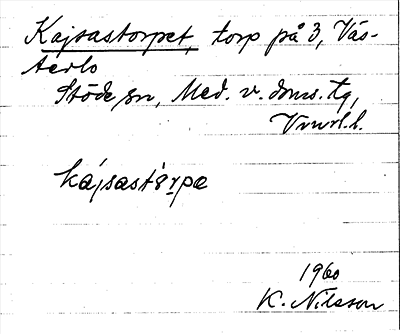 Kajsastorpet, torp på 3, Väs-
terlo
Stöde sn, Med. v. doms. tg,
Vnorl. l.
kájsastòrpa
1960
K. Nilsson